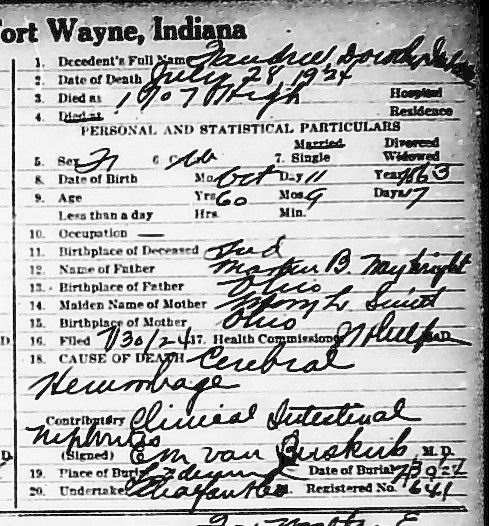 Fort Wayne, Indiana
1. Decedent's Full Name Dorothy
2. Date of Death July 28, 1924
3. Died at 1707 High Hospital
4. Died at Residence
PERSONAL AND STATISTICAL PARTICULARS
Married Divorced
5. Sex F 6 W 7. Single Widowed
8. Date of Birth Mo Oct Day 11 Year 1863
9. Age Yrs 60 Mos 9 Days 17
Less than a day Hrs. Min.
10. Occupation —
11. Birthplace of Deceased Ind
12. Name of Father B.
13. Birthplace of Father Ohio
14. Maiden Name of Mother Mary L Smith
15. Birthplace of Mother Ohio
16. Filed 7/30/24 17. Health Commissioner
18. CAUSE OF DEATH Cerebral
Hemorrhage
Contributory Intestinal
Nephritis
(Signed) E M Van Buskirk, M. D.
19. Place of Burial Date of Burial
20. Undertaker Registered No. 641